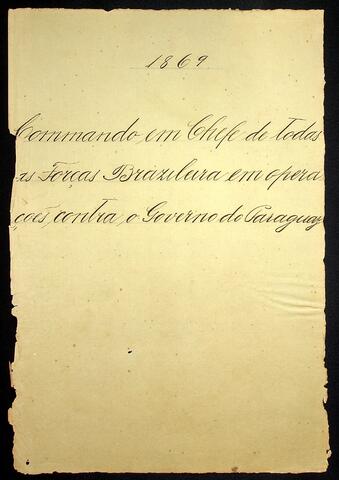 1869
Commando em Chefe de todas
as Forças Brazileira em opera
ções contra o Governo do Paraguay